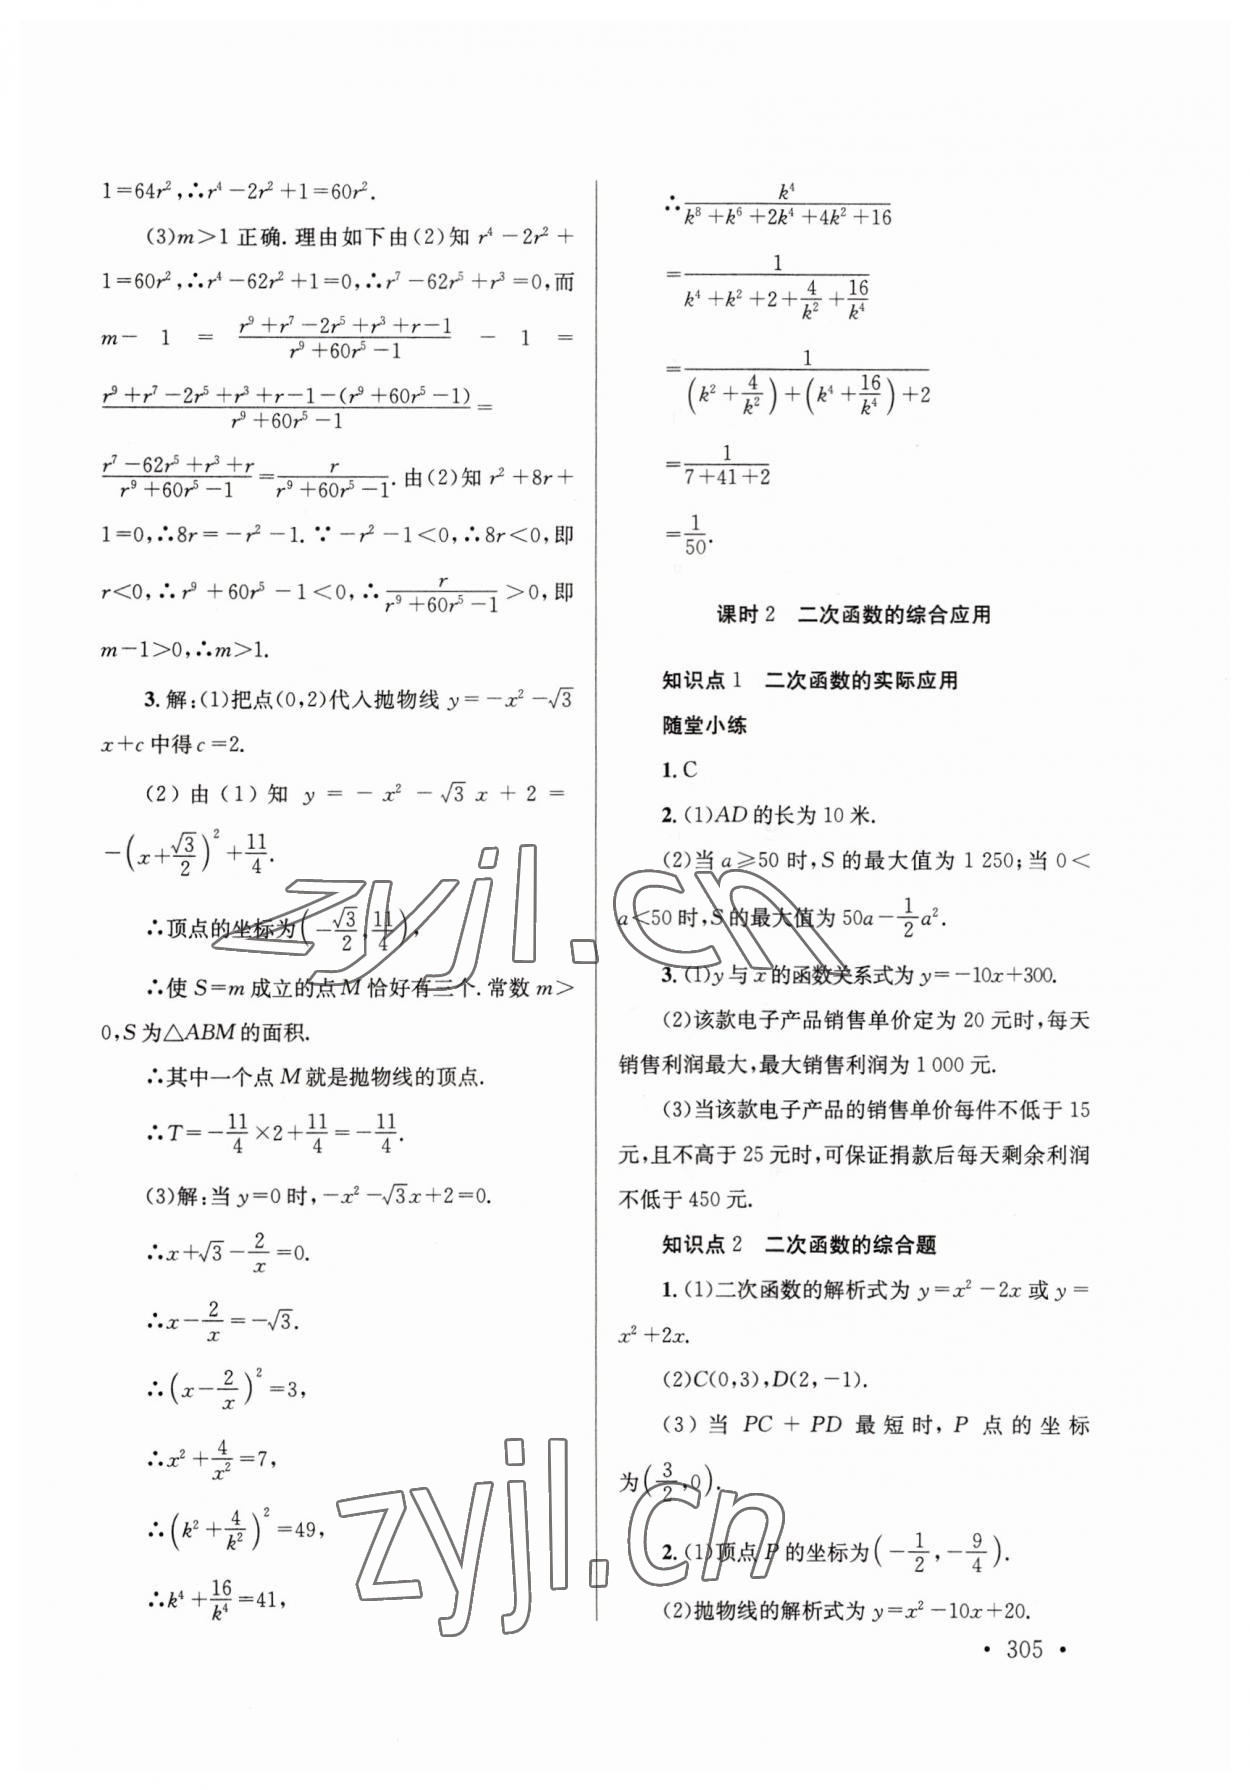 1=64r²,∴r⁴-2r²+1=60r².
(3)m>1 正确. 理由如下由(2)知 r⁴-2r²+
1=60r²,∴r⁴-62r²+1=0,∴r⁷-62r⁵+r³=0,而
m- 1 = \frac{r⁹+r⁷-2r⁵+r³+r-1}{r⁹+60r⁵-1} - 1 =
\frac{r⁹+r⁷-2r⁵+r³+r-1-(r⁹+60r⁵-1)}{r⁹+60r⁵-1}=
\frac{r⁷-62r⁵+r³+r}{r⁹+60r⁵-1}=\frac{r}{r⁹+60r⁵-1}.由(2)知 r²+8r+
1=0,∴8r=-r²-1.∵-r²-1<0,∴8r<0,即
r<0,∴r⁹+60r⁵-1<0,∴\frac{r}{r⁹+60r⁵-1}>0,即
m-1>0,∴m>1.
3.解:(1)把点(0,2)代入抛物线 y=-x²-√3
x+c 中得 c=2.
(2) 由 (1) 知 y = - x² - √3 x + 2 =
-(x+\frac{√3}{2})²+\frac{11}{4}.
∴顶点的坐标为(-\frac{√3}{2},\frac{11}{4}),
∴使 S=m 成立的点 M 恰好有三个.常数 m>
0,S 为△ABM 的面积.
∴其中一个点 M 就是抛物线的顶点.
∴T=-\frac{11}{4}×2+\frac{11}{4}=-\frac{11}{4}.
(3)解:当 y=0 时,-x²-√3x+2=0.
∴x+√3-\frac{2}{x}=0.
∴x-\frac{2}{x}=-√3.
∴(x-\frac{2}{x})²=3,
∴x²+\frac{4}{x²}=7,
∴(k²+\frac{4}{k²})²=49,
∴k⁴+\frac{16}{k⁴}=41,
∴\frac{k⁴}{k⁸+k⁶+2k⁴+4k²+16}
=\frac{1}{k⁴+k²+2+\frac{4}{k²}+\frac{16}{k⁴}}
=\frac{1}{(k²+\frac{4}{k²})+(k⁴+\frac{16}{k⁴})+2}
=\frac{1}{7+41+2}
=\frac{1}{50}.
课时 2 二次函数的综合应用
知识点 1 二次函数的实际应用
随堂小练
1. C
2. (1)AD 的长为 10 米.
(2)当 a≥50 时,S 的最大值为 1 250;当 0<
a<50 时,S 的最大值为 50a-\frac{1}{2}a².
3. (1)y 与 x 的函数关系式为 y=-10x+300.
(2)该款电子产品销售单价定为 20 元时,每天
销售利润最大,最大销售利润为 1 000 元.
(3)当该款电子产品的销售单价每件不低于 15
元,且不高于 25 元时,可保证捐款后每天剩余利润
不低于 450 元.
知识点 2 二次函数的综合题
1. (1)二次函数的解析式为 y=x²-2x 或 y=
x²+2x.
(2)C(0,3),D(2,-1).
(3) 当 PC + PD 最短时, P 点的坐标
为(\frac{3}{2},0).
2. (1)顶点 P 的坐标为(-\frac{1}{2},-\frac{9}{4}).
(2)抛物线的解析式为 y=x²-10x+20.
• 305 •
zyjl.cn
zyjl.cn